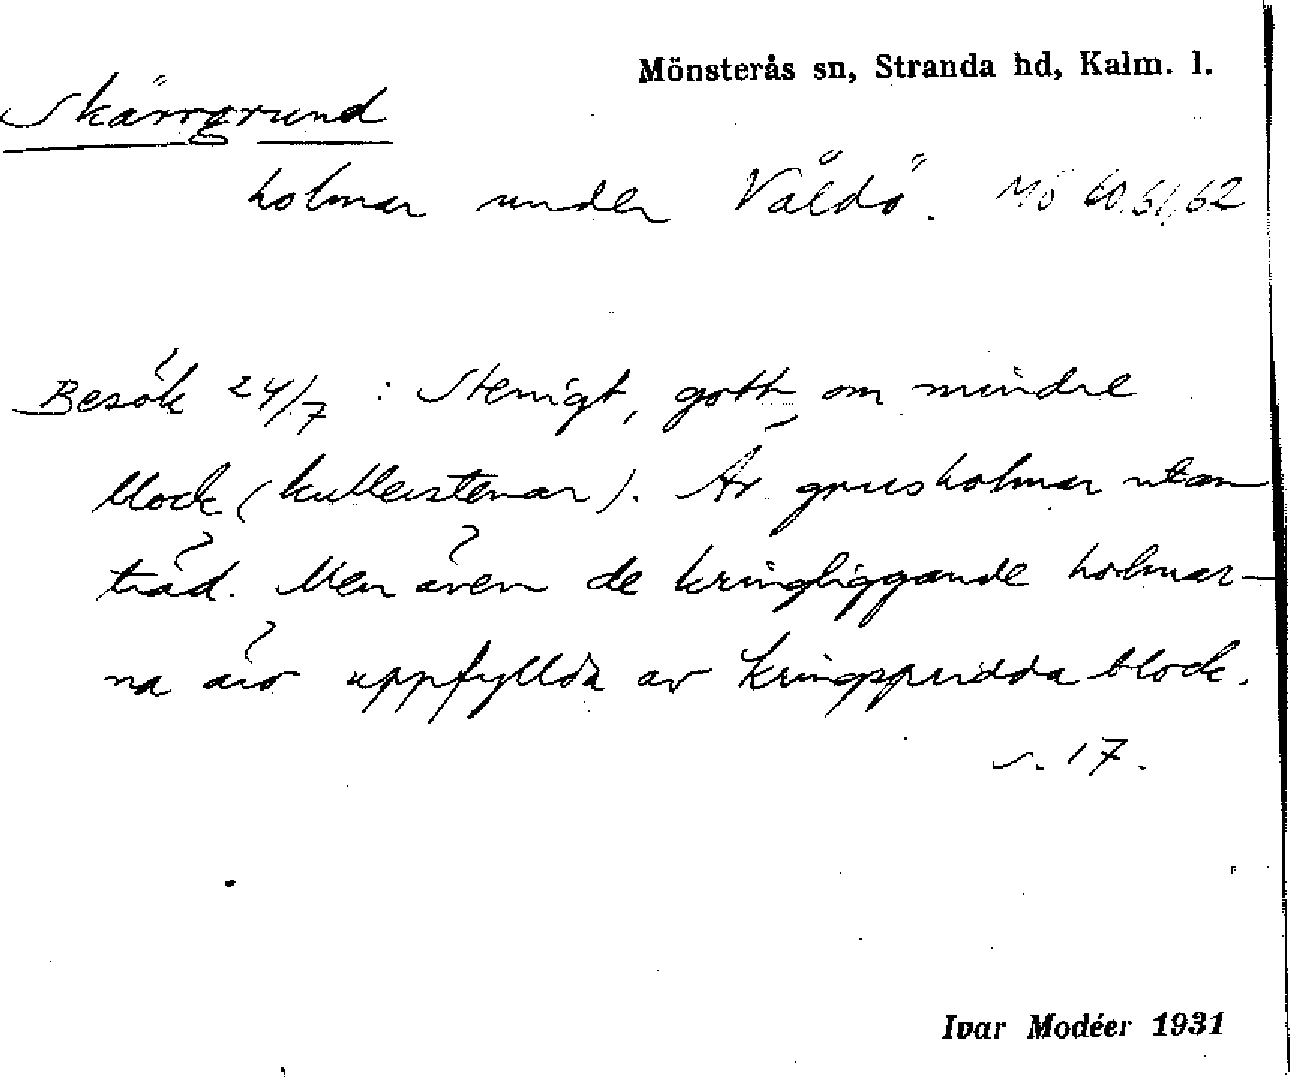 Mönsterås sn, Stranda hd, Kalm. l.
Skärrgrund
holmar under Väldö. Mö 60,61,62
Besök 24/7 : Stenigt, gott om mindre
block (kullerstenar). Är grusholmar utan
träd. Men även de kringliggande holmar-
na äro uppfyllda av kringspridda block.
s. 17.
Ivar Modéer 1931